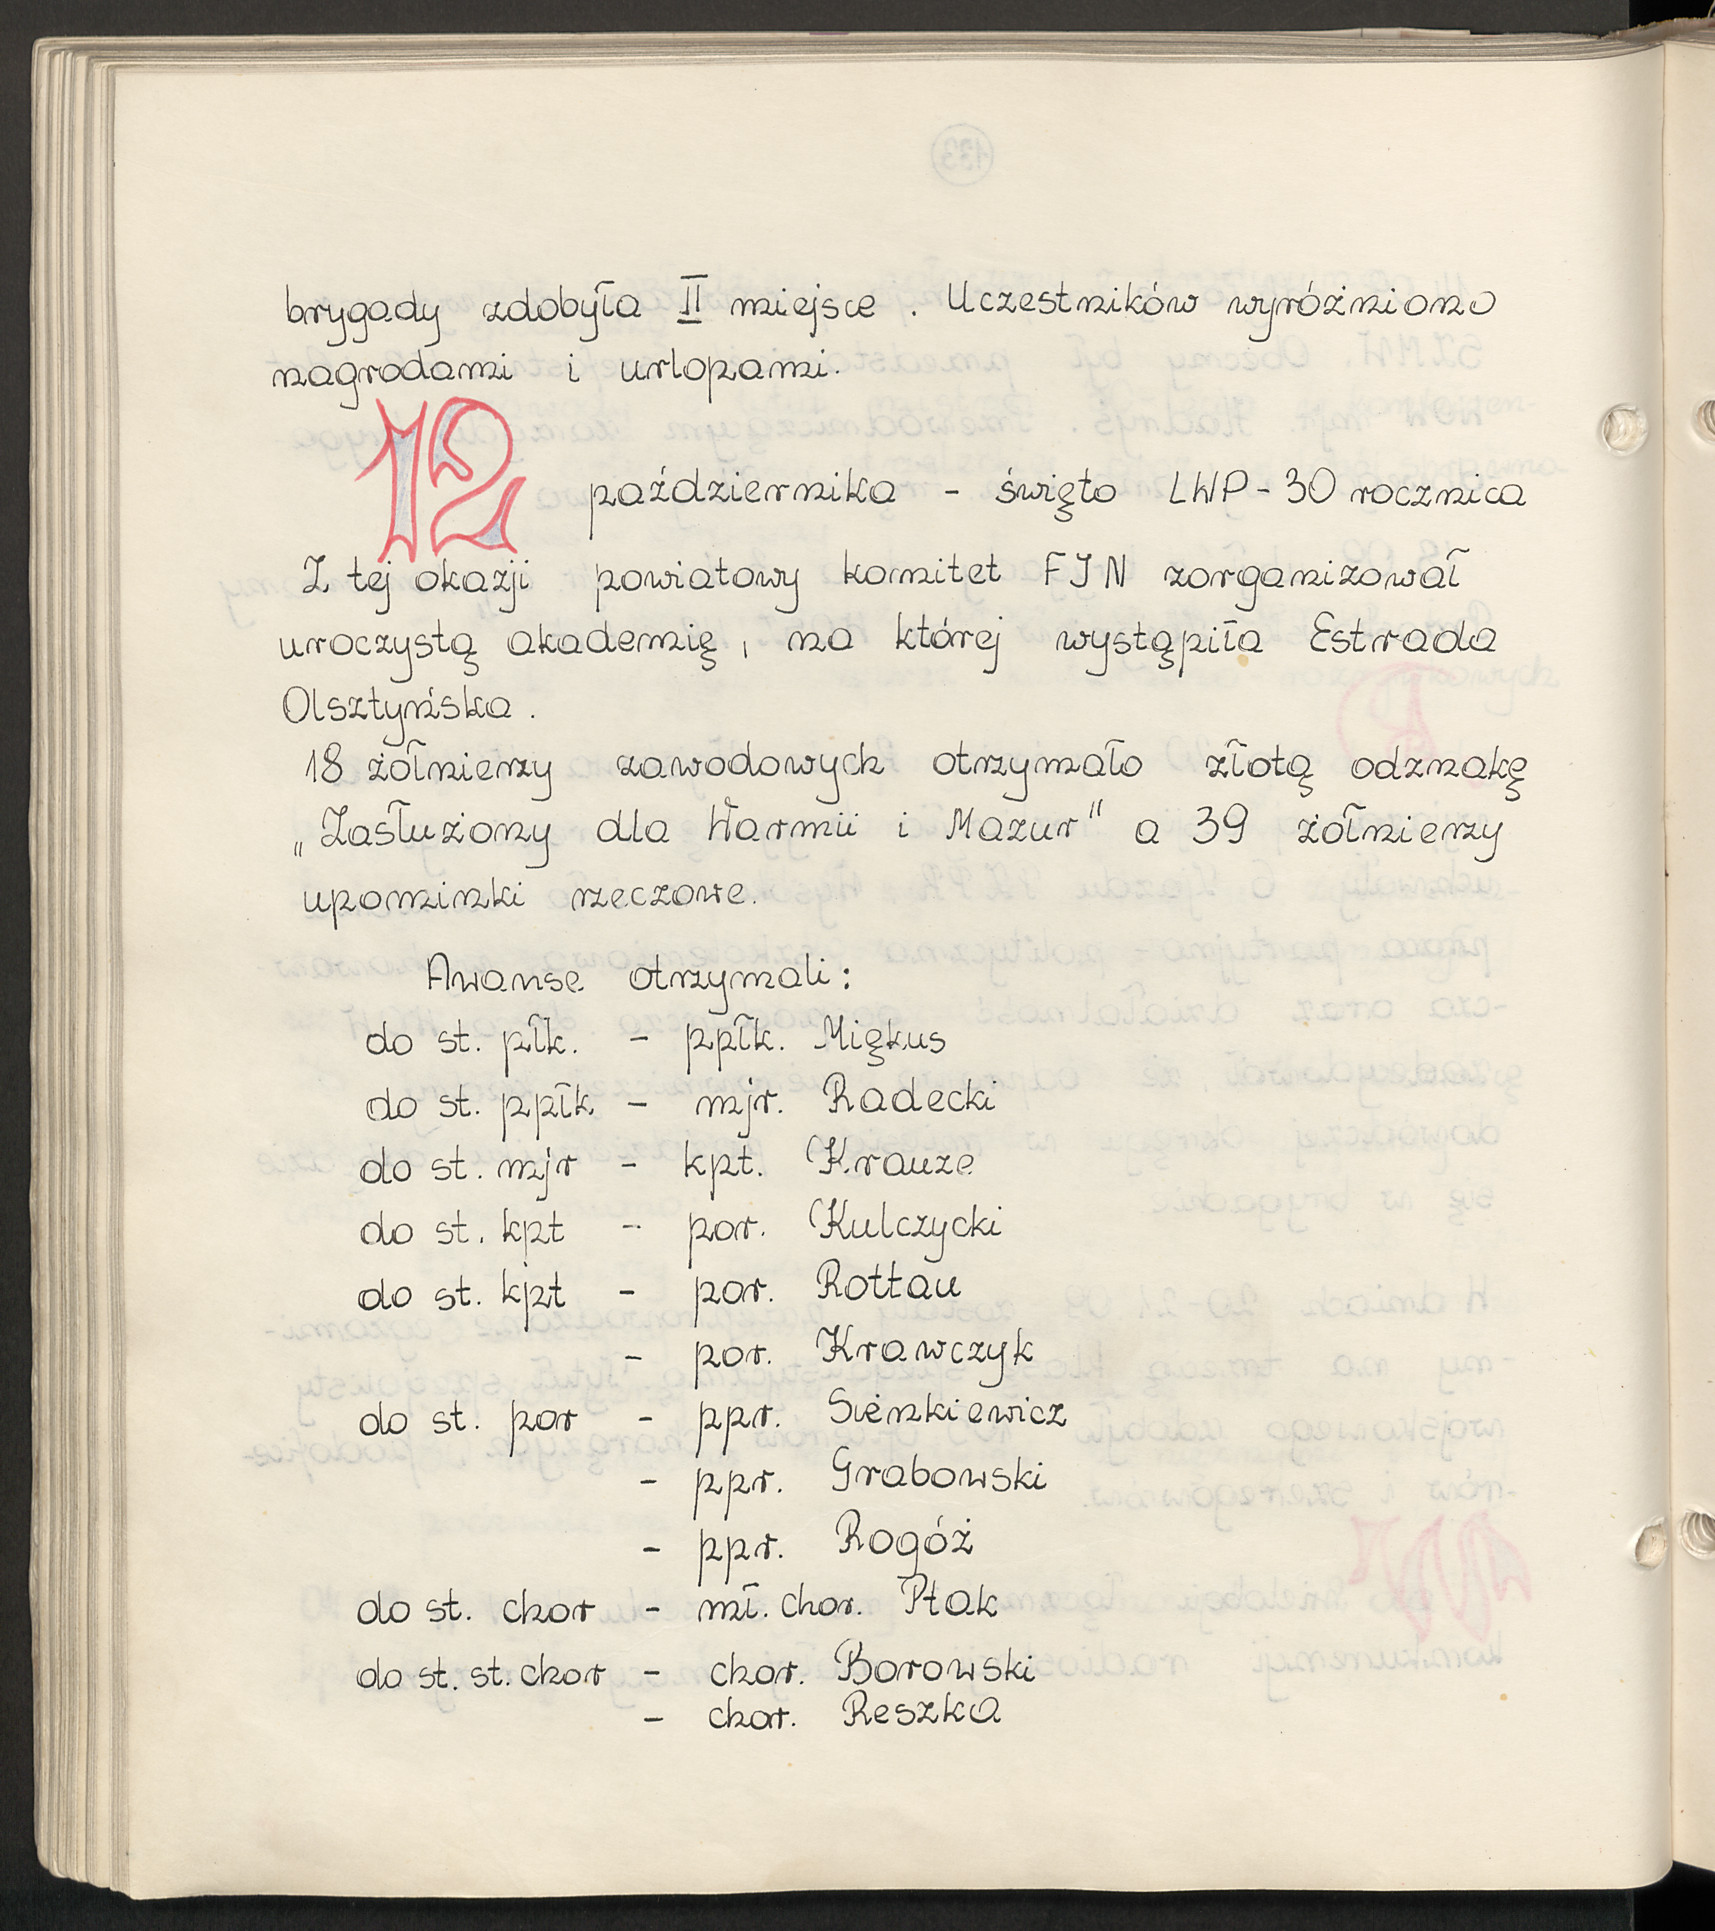 brygady zdobyła II miejsce. Uczestników wyróżniono
nagrodami i urlopami.
12 października - święto LWP - 30 rocznica
Z tej okazji powiatowy komitet FJN zorganizował
uroczystą akademię, na której wystąpiła Estrada
Olsztyńska.
18 żołnierzy zawodowych otrzymało złotą odznakę
„Zasłużony dla Warmii i Mazur" a 39 żołnierzy
upominki rzeczowe.
Awanse otrzymali:
do st. płk. - ppłk. Miękus
do st. ppłk - mjr. Radecki
do st. mjr - kpt. Krauze
do st. kpt - por. Kulczycki
do st. kpt - por. Rottau
- por. Krawczyk
do st. por - ppr. Sienkiewicz
- ppr. Grabowski
- ppr. Rogóż
do st. chor - mł. chor. Ptak
do st. st. chor - chor. Borowski
- chor. Reszka